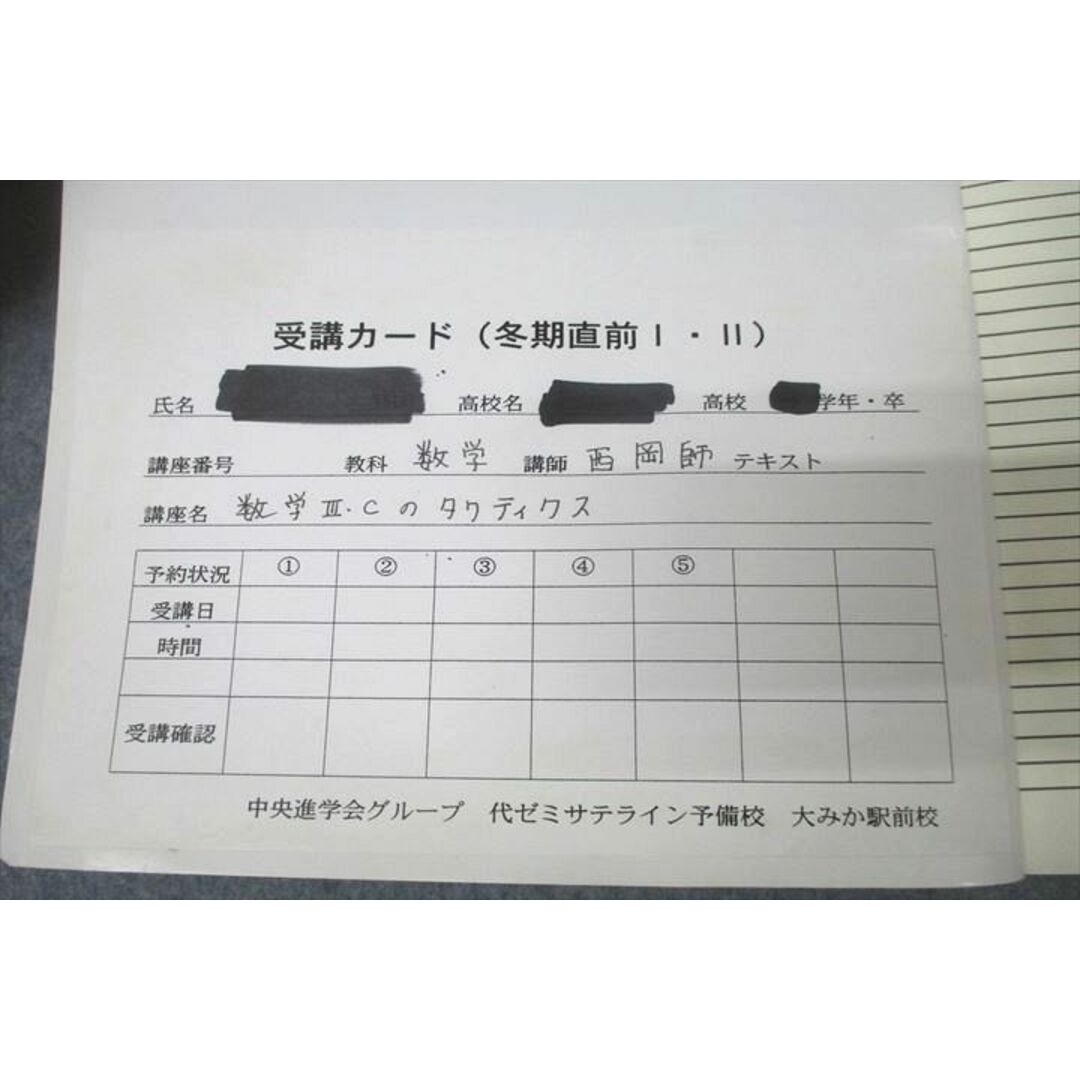 受講カード（冬期直前Ⅰ・Ⅱ）
氏名 高校名 高校 学年・卒
講座番号 教科 数学 講師 西岡師 テキスト
講座名 数学Ⅲ.Cのタクティクス
予約状況 ① ② ③ ④ ⑤
受講日
時間
受講確認
中央進学会グループ 代ゼミサテライン予備校 大みか駅前校